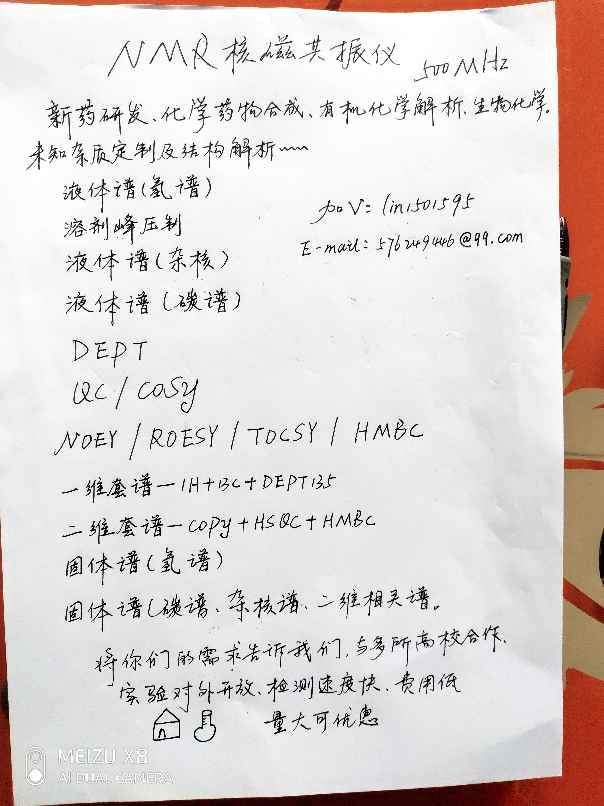 NMR核磁共振仪 500MHz
新药研发、化学药物合成、有机化学解析、生物化学。
未知杂质定制及结构解析……
液体谱(氢谱)
加V: lin1501595
溶剂峰压制
E-mail: 576249446@qq.com
液体谱(杂核)
液体谱(碳谱)
DEPT
QC/COSY
NOEY/ROESY/TOCSY/HMBC
一维套谱—1H+13C+DEPT135
二维套谱—COPY+HSQC+HMBC
固体谱(氢谱)
固体谱(碳谱、杂核谱、二维相关谱。
将你们的需求告诉我们,与多所高校合作、
实验对外开放、检测速度快、费用低
量大可优惠
MEIZU X8
AI DUAL CAMERA